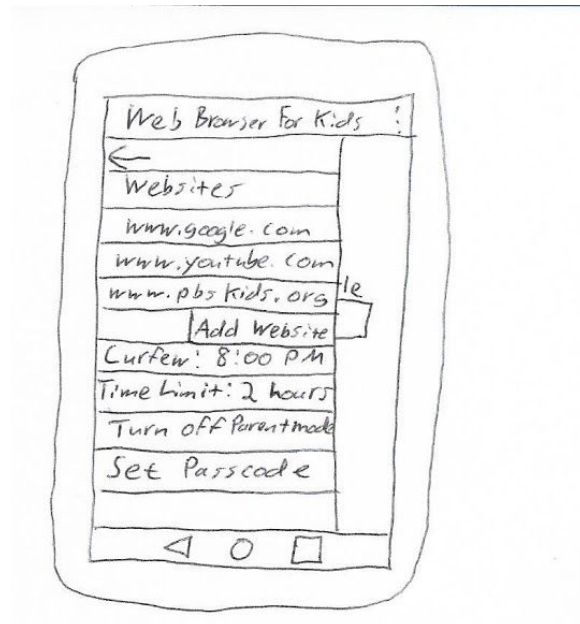 Web Browser For Kids
Websites
www.google.com
www.youtube.com
www.pbskids.org
le
Add Website
Curfew: 8:00 PM
Time Limit: 2 hours
Turn off Parentmode
Set Passcode